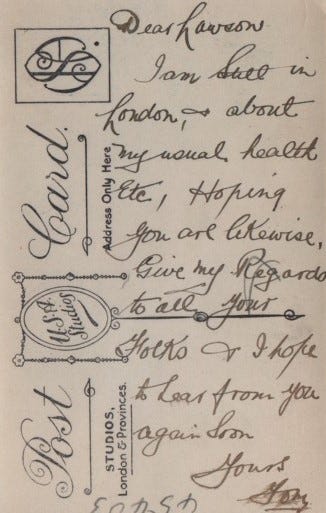 Dear Lawson
I am still in
London, & about
my usual health
Etc, Hoping
you are likewise,
Give my Regards
to all your
Folks & I hope
to hear from you
again soon
Yours
Post Card.
Address Only Here
U.S.A. Studios
STUDIOS,
London & Provinces.